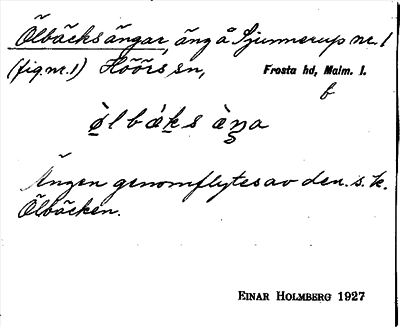 Ölbäcksängar, äng å Sjunnerup nr. 1
(fig. nr. 1) Höörs sn, Frosta hd, Malm. l.
f
Ängen genomflytes av den s. k.
Ölbäcken.
EINAR HOLMBERG 1927